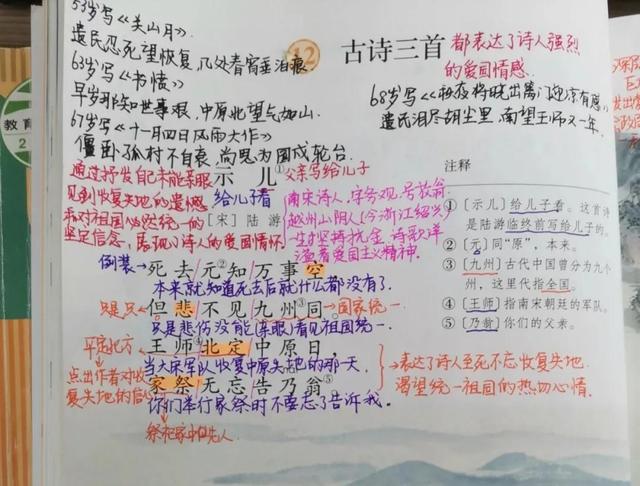 53岁写《关山月》.
遗民忍死望恢复,几处今宵垂泪痕.
63岁写《书愤》
早岁那知世事艰,中原北望气如山.
67岁写《十一月四日风雨大作》
僵卧孤村不自哀,尚思为国戍轮台.
12 古诗三首
都表达了诗人强烈
的爱国情感.
68岁写《秋夜将晓出篱门迎凉有感》
遗民泪尽胡尘里,南望王师又一年.
示儿①
父亲写给儿子
给儿子看
[宋] 陆游
通过抒发自己未能亲眼
见到收复失地的遗憾
和对祖国必然统一的
坚定信念,展现了诗人的爱国情怀
南宋诗人,字务观,号放翁,
越州山阴人(今浙江绍兴)
一生坚持抗金,诗歌洋
溢着爱国主义精神.
倒装→死去元②知万事空
本来就知道死去后就什么都没有了.
只是←但悲不见九州③同。→国家统一
只是悲伤没能(亲眼)看见祖国统一.
平定北方
王师④北定中原日,
当大宋军队收复中原失地的那一天
点出作者对收
复失地的信心
家祭无忘告乃翁⑤
你们举行家祭时不要忘了告诉我.
祭祀家中先人
表达了诗人至死不忘收复失地,
渴望统一祖国的热切心情.
注释
①〔示儿〕给儿子看。这首诗
是陆游临终前写给儿子的。
②〔元〕同“原”,本来。
③〔九州〕古代中国曾分为九个
州,这里代指全国。
④〔王师〕指南宋朝廷的军队。
⑤〔乃翁〕你们的父亲。
教育